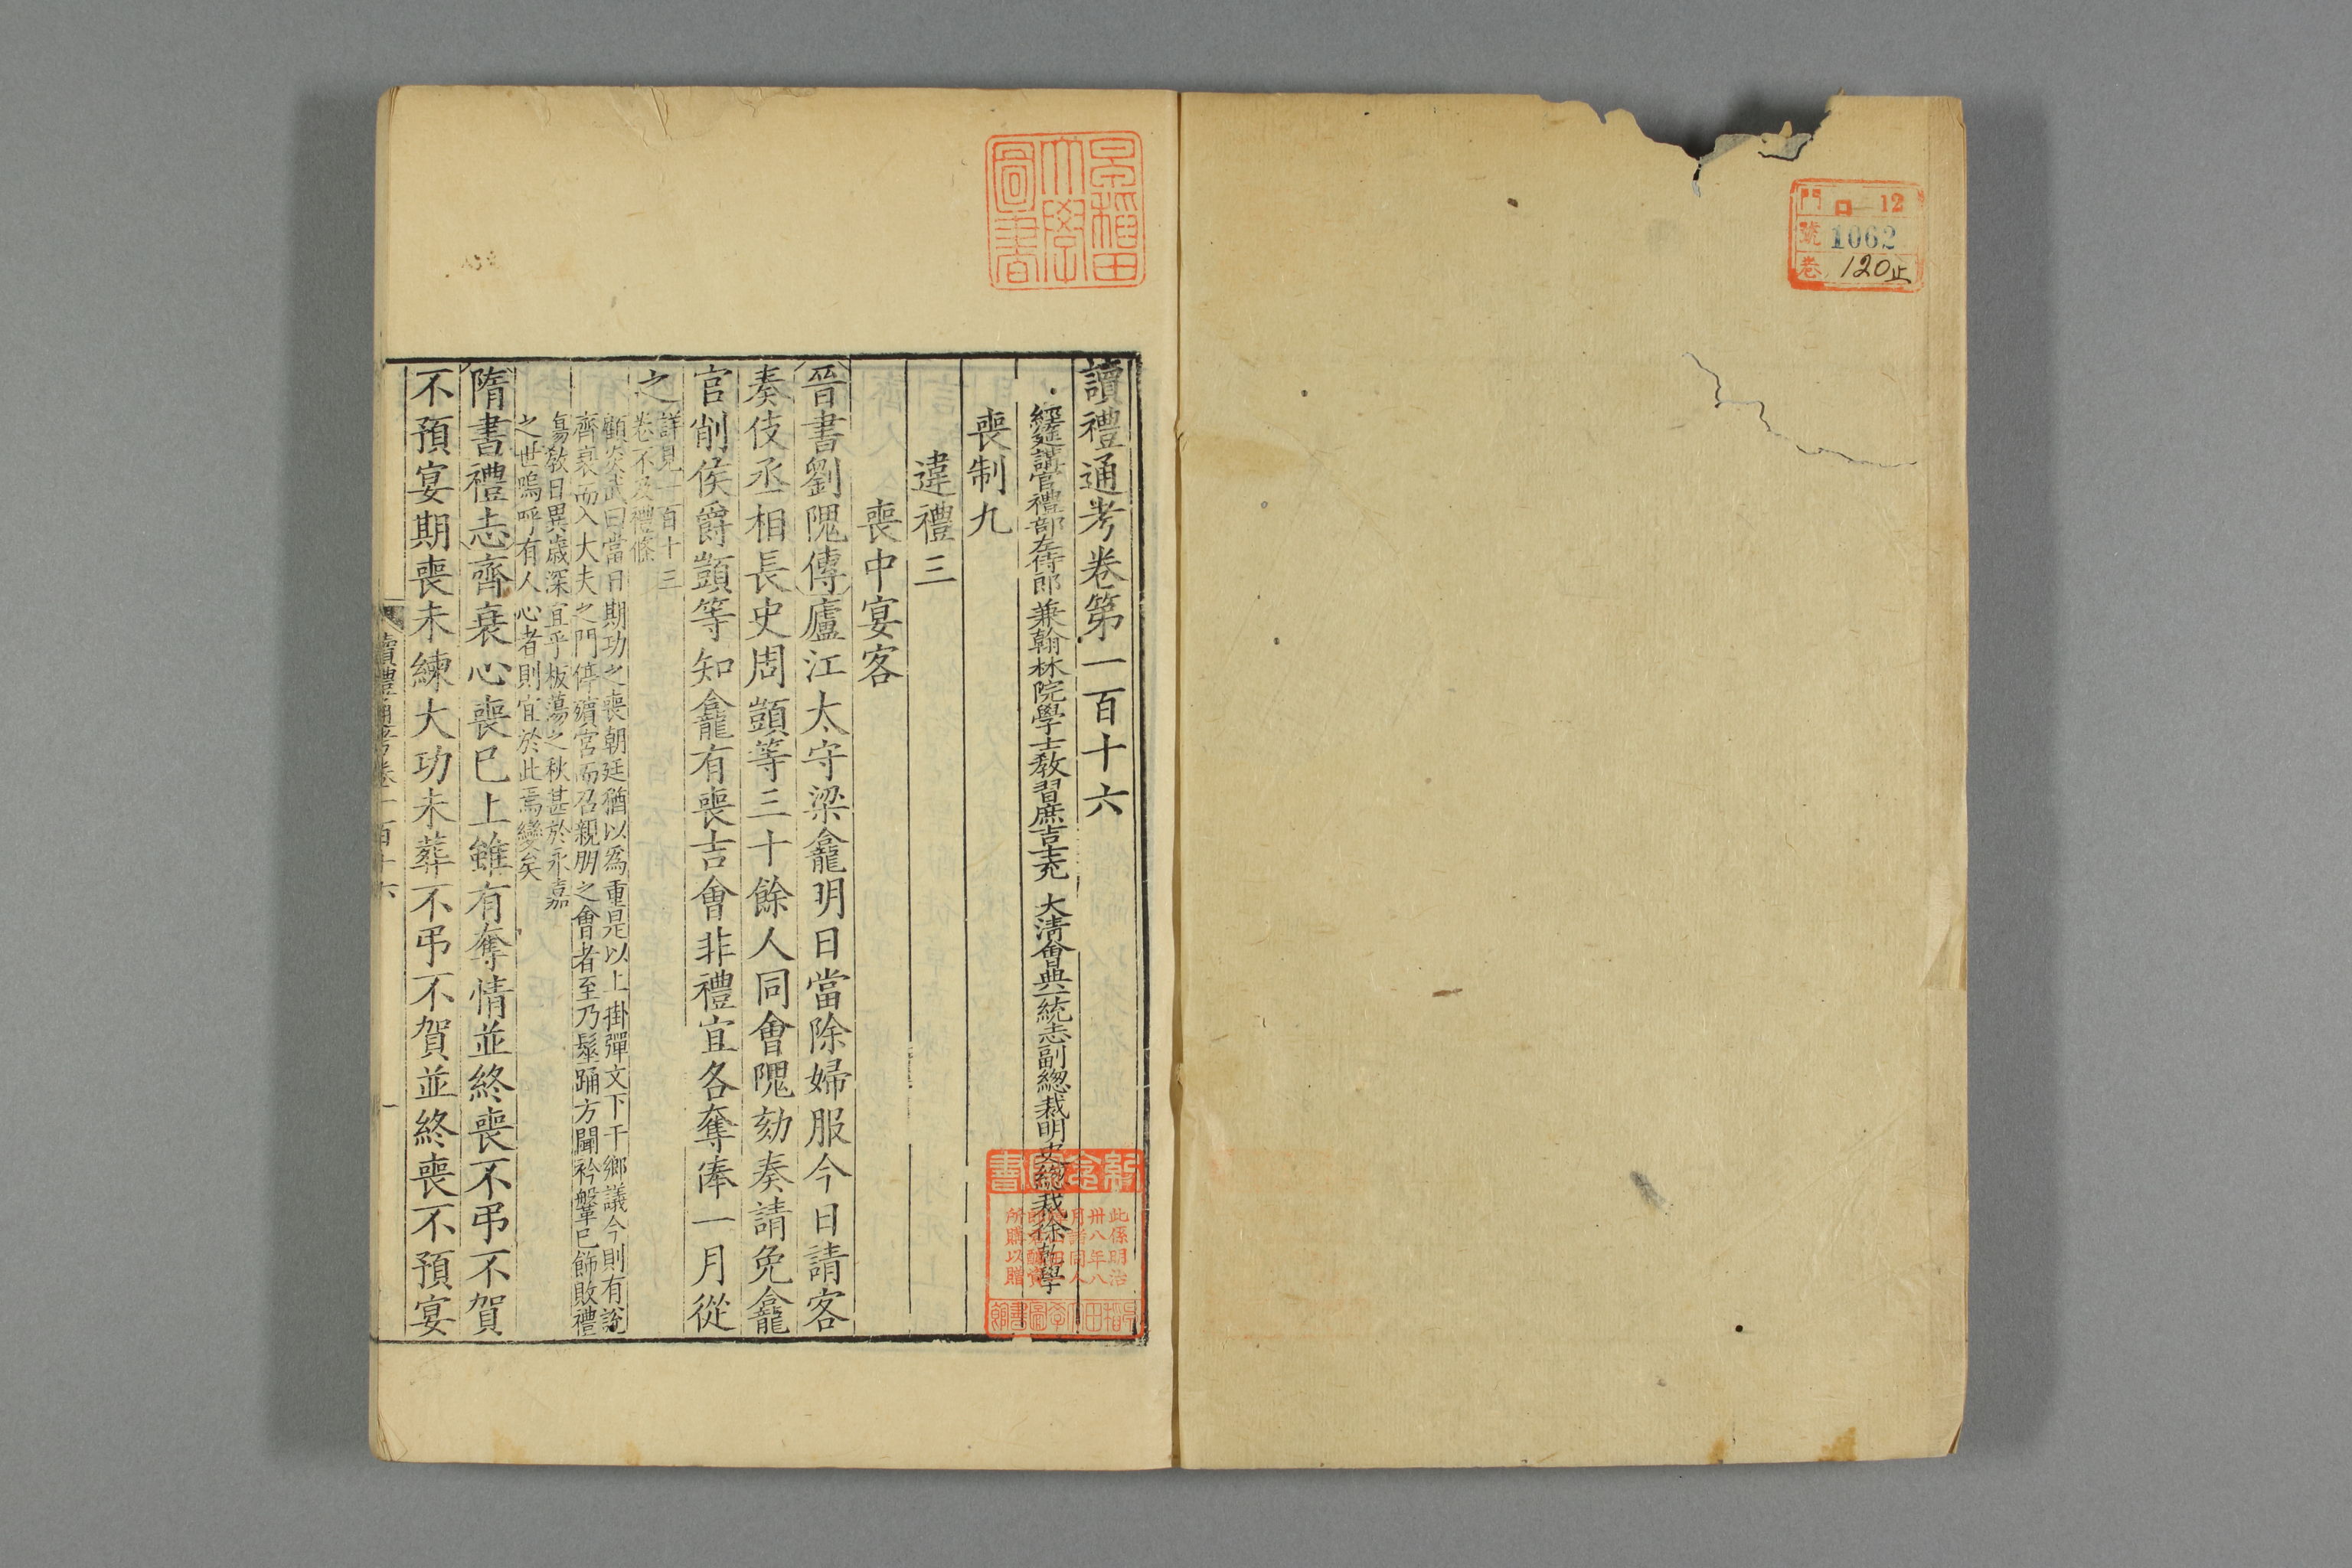 門 ロ 12
號 1062
卷 120止
早稲田
大學
圖書
讀禮通考卷第一百十六
經筵講官禮部左侍郎兼翰林院學士教習庶吉士充 大清會典一統志副總裁明史總裁徐乾學
喪制九
違禮三
喪中宴客
晉書劉隗傳廬江太守梁龕明日當除婦服今日請客
奏伎丞相長史周顗等三十餘人同會隗劾奏請免龕
官削侯爵顗等知龕有喪吉會非禮宜各奪俸一月從
之
詳見一百十三
卷不及禮條
顧炎武曰當日期功之喪朝廷猶以爲重是以上掛彈文下干鄉議今則有說
齊衰而入大夫之門停殯宮而召親朋之會者至乃髽踊方聞衿鞶已飾敗禮
傷敎日異歲深宜乎板蕩之秋甚於永嘉
之世嗚呼有人心者則宜於此焉變矣
隋書禮志齊衰心喪已上雖有奪情並終喪不弔不賀
不預宴期喪未練大功未葬不弔不賀並終喪不預宴
讀禮通考卷一百十六
一
此係明治
卅八年八
月諸同人
所購以贈